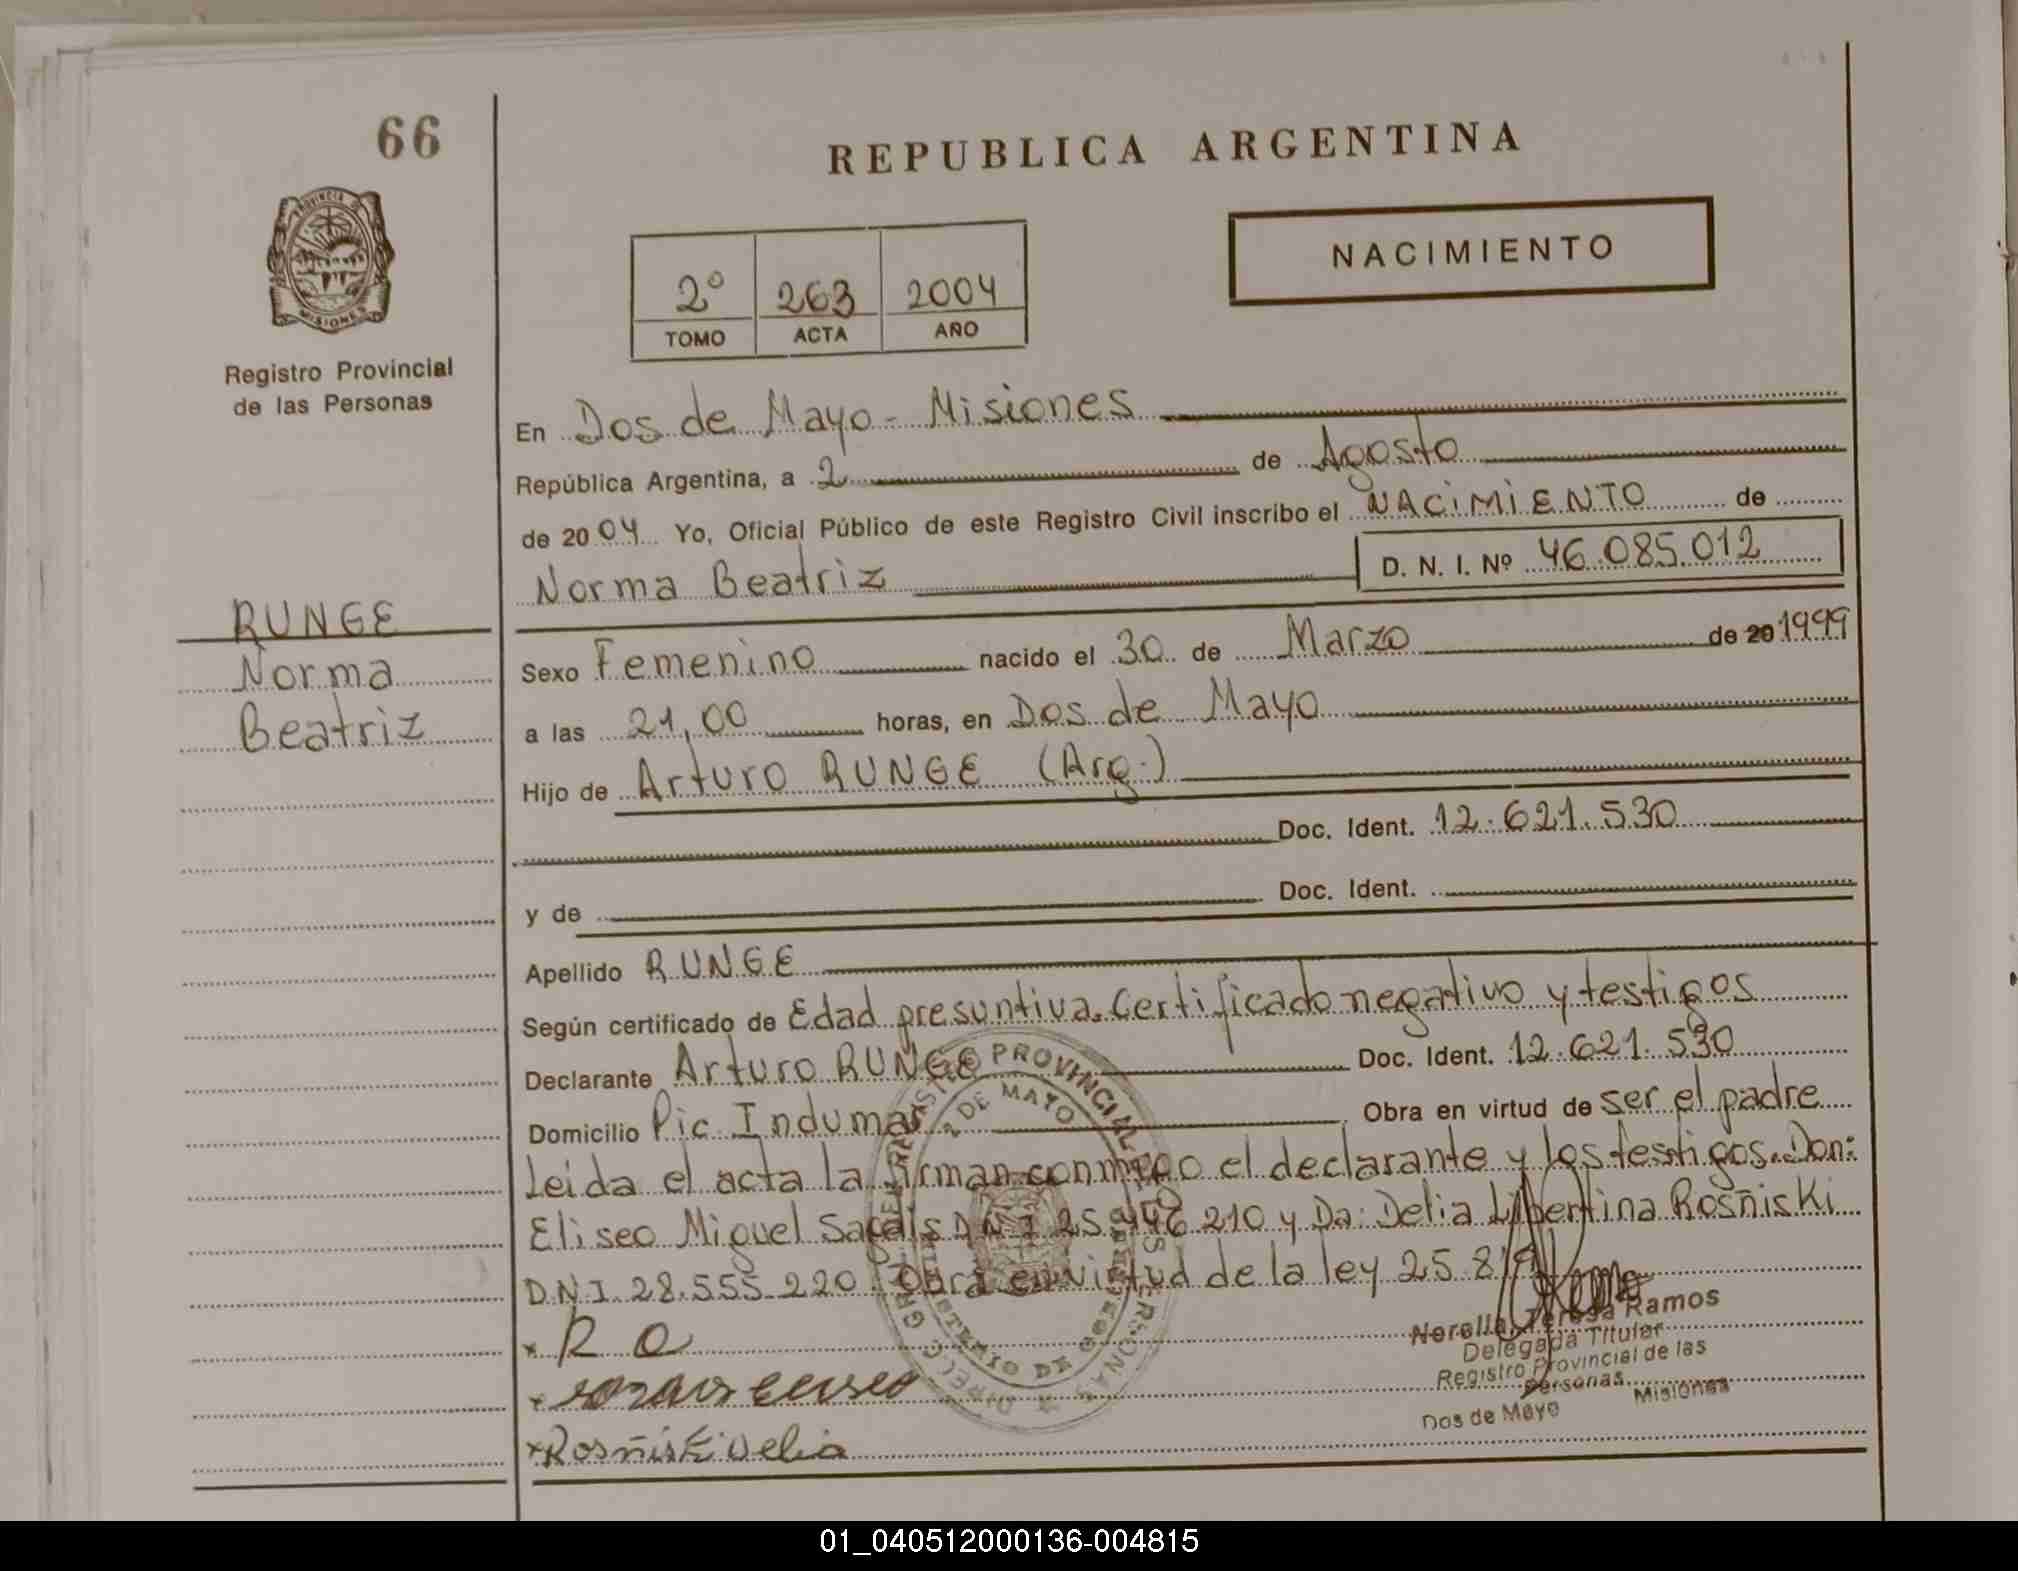 66
REPUBLICA ARGENTINA
PROVINCIA DE
MISIONES
Registro Provincial
de las Personas
NACIMIENTO
2º 263 2004
TOMO ACTA AÑO
En Dos de Mayo - Misiones
República Argentina, a 2 de Agosto
de 2004 Yo, Oficial Público de este Registro Civil inscribo el NACIMIENTO de
Norma Beatriz D. N. I. Nº 46.085.012
RUNGE
Norma
Beatriz
Sexo Femenino nacido el 30 de Marzo de 20 1999
a las 21,00 horas, en Dos de Mayo
Hijo de Arturo RUNGE (Arg.)
Doc. Ident. 12.621.530
y de Doc. Ident.
Apellido RUNGE
Según certificado de Edad presuntiva. Certificado negativo y testigos
Declarante Arturo RUNGE Doc. Ident. 12.621.530
Domicilio Pic. Indumar Obra en virtud de ser el padre
Leida el acta la firman conmigo el declarante y los testigos. Don:
Eliseo Miguel DNI 25.446.210 y Da: Delia Libertina Rosñiski
D.N.I. 28.555.220. Obra en virtud de la ley 25.819
x R A
x eliseo
x Rosñiski Delia
PROVINCIAL
2 DE MAYO
Norella Teresa Ramos
Delegada Titular
Registro Provincial de las
Personas
Dos de Mayo Misiones
01_040512000136-004815